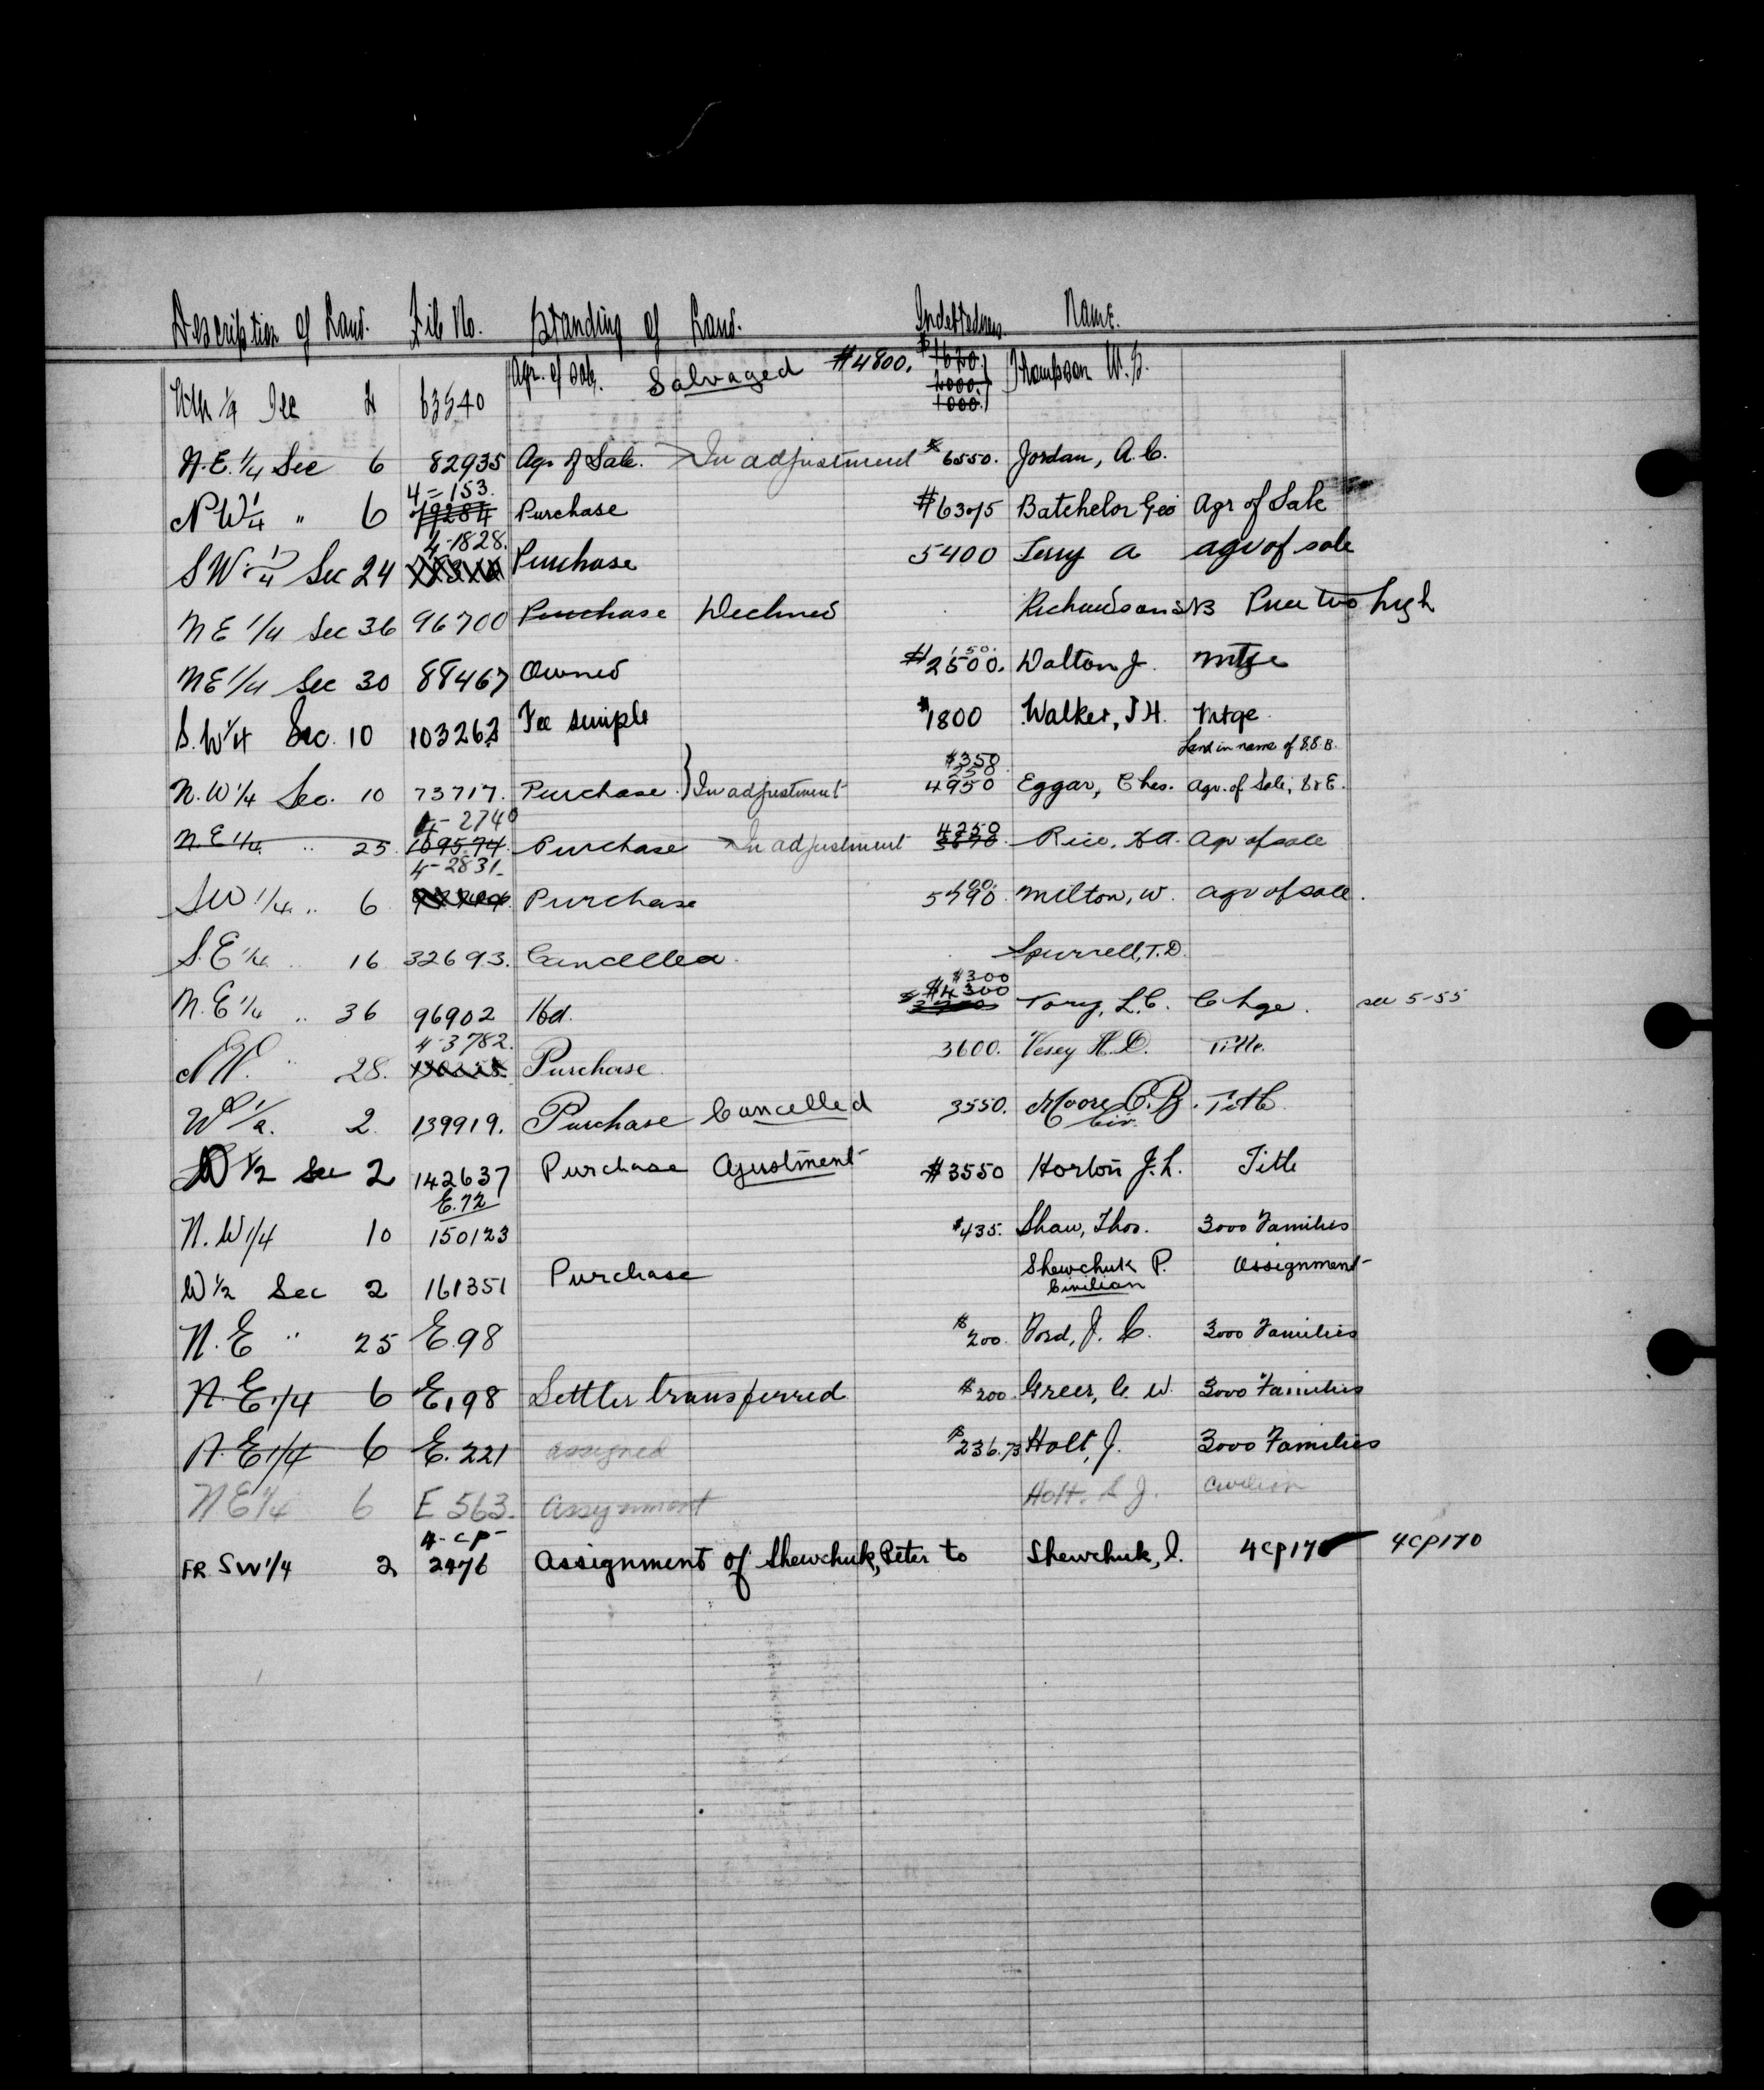 Description of Land. File No. Standing of Land. Indebtedness. Name.
1/4 Sec 63540 Agr. of Sale. Salvaged $4800. $1620. Thompson W.
2000.
1000.
N.E. 1/4 Sec 6 82935 Agr of Sale. In adjustment $6550. Jordan, A.C.
4-153.
N W 1/4 " 6 79284 Purchase $6375 Batchelor Geo Agr of Sale
4-1828.
S W 1/4 Sec 24 Purchase 5400 Terry A agr of sale
N E 1/4 Sec 36 96700 Purchase Declined Richardson Price two high
50.
N E 1/4 Sec 30 88467 Owned $2500. Walton J. mtge
S. W 1/4 Sec. 10 103262 Fee simple $1800 Walker, J H. Mtge.
Land in name of S.S.B.
$350
250
N. W 1/4 Sec. 10 73717. Purchase. } In adjustment 4950 Eggar, Chas. Agr. of Sale, S & E.
4-2740
N. E 1/4 " 25 109574. Purchase In adjustment 4250 Rice, H A. Agr of sale
4-2831.
100.
S W 1/4 " 6 Purchase 5790. Milton, W. agr of sale.
S. E 1/4 " 16 32693. Cancelled. Spurrell, T.D.
$300
$4300
N. E 1/4 " 36 96902 Hd. Tory, L.C. Chge. see 5-55
4-3782.
N W. " 28. Purchase. 3600. Vesey H.D. Title.
W 1/2. 2. 139919. Purchase Cancelled 3550. Moore C.B. Title.
Civ.
W 1/2 Sec 2 142637 Purchase Ajustment $3550 Horton J.L. Title
E.72
N. W 1/4 10 150123 $435. Shaw, Thos. 3000 Families
W 1/2 Sec 2 161351 Purchase Shewchuk P. Assignment
Civilian
N. E " 25 E.98 $200. Ford, J. C. 3000 Families
N. E 1/4 6 E,98 Settler transferred $200. Greer, C. W. 3000 Families
N. E 1/4 6 E. 221 assigned $236.73 Holt, J. 3000 Families
N E 1/4 6 E 563. Assignment Holt. S J. Civilian
4-CP-
FR. SW 1/4 2 2476 Assignment of Shewchuk, Peter to Shewchuk, I. 4CP170 4CP170